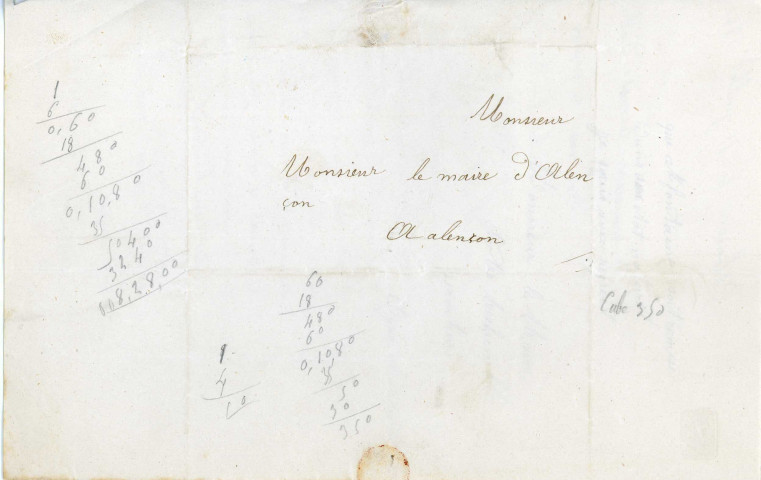 Monsieur
Monsieur le maire d'Alen
çon
A alençon
1
6
0,60
18
480
60
0,10,80
35
5400
3240
60
18
480
60
0,10,80
50
30
350
1
4
Cube 350